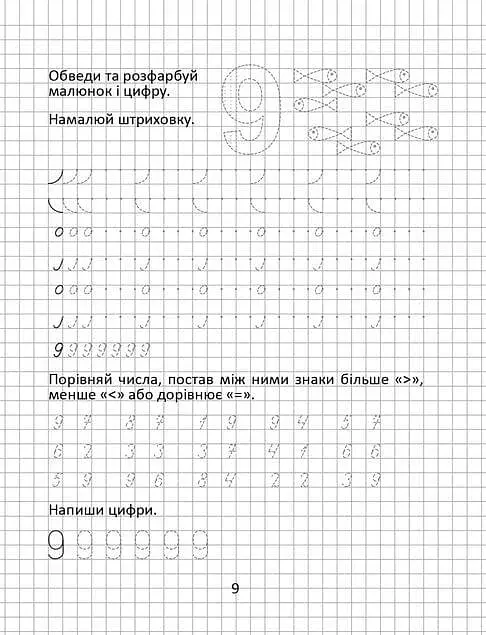 Обведи та розфарбуй
малюнок і цифру.
Намалюй штриховку.
9
9 9 9 9 9 9 9
Порівняй числа, постав між ними знаки більше «>»,
менше «<» або дорівнює «=».
9 7 8 7 1 9 9 4 5 7
6 2 3 3 3 7 4 1 6 6
5 9 9 6 8 4 2 2 3 9
Напиши цифри.
9 9 9 9 9 9
9